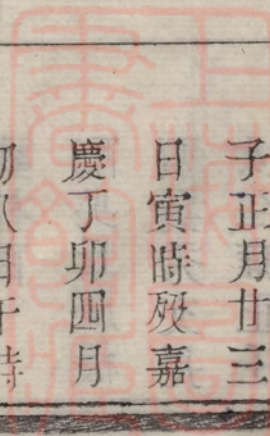 子正月廿三
日寅時歿嘉
慶丁卯四月
初八日午時